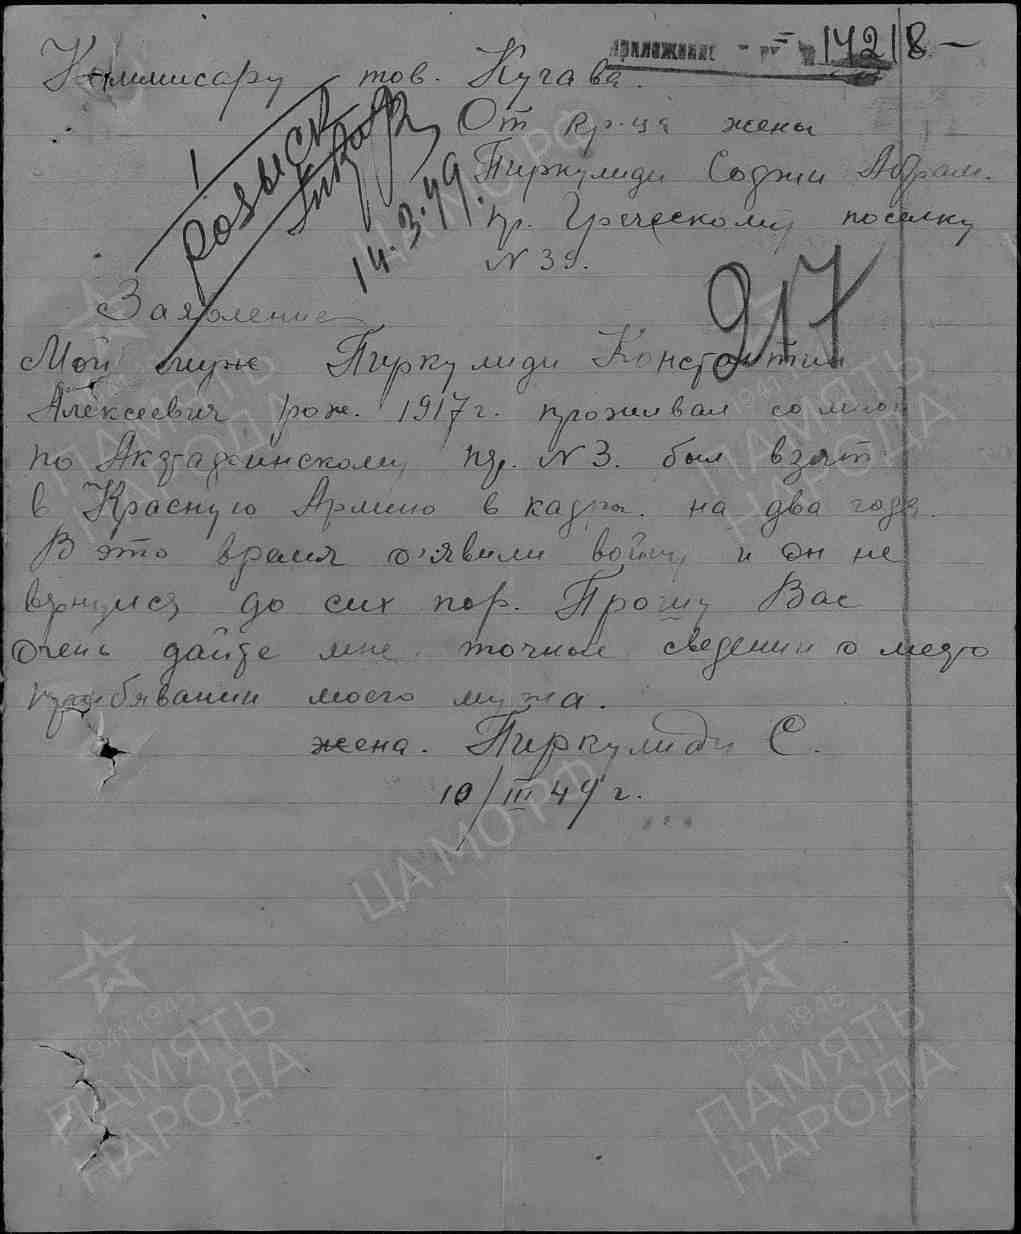 Приложение 14218 –
Коммисару тов. Кучава.
От кр-ца жены
Пиркулиди Соджи Абрам.
пр. Греческому поселку
N 39.
розыск
14.3.49.
917
Заявление
Мой муж Пиркулиди Константин
Алексеевич рож. 1917 г. проживал со мной
по N 3. был взят
в Красную Армию в кадры. на два года.
В это время о'явили войну и он не
вернулся до сих пор. Прошу Вас
очень дайте мне точные сведении о место
моего мужа.
жена. Пиркулиди С.
10/III 49 г.
ЦАМО РФ
1941-1945
ПАМЯТЬ
НАРОДА
1941-1945
ПАМЯТЬ
НАРОДА
ЦАМО РФ
1941-1945
ПАМЯТЬ
НАРОДА
1941-1945
ПАМЯТЬ
НАРОДА